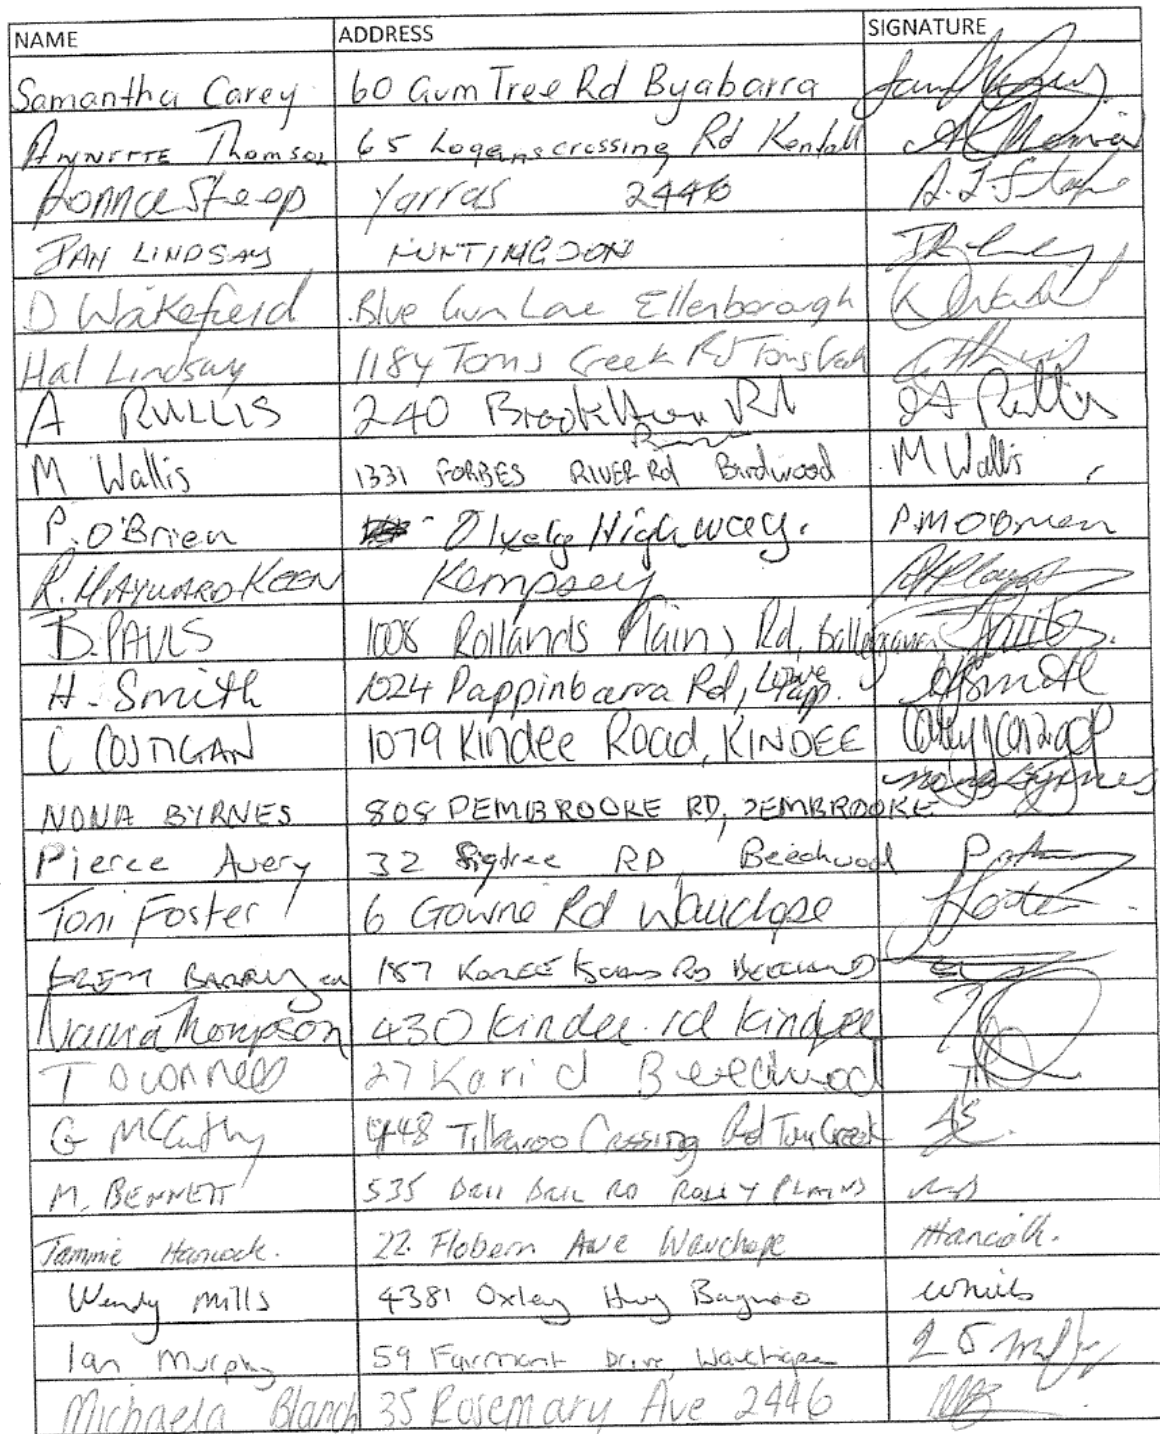 NAME ADDRESS SIGNATURE
Samantha Carey 60 Gum Tree Rd Byabarra
ANNETTE Thomson 65 Loganscrossing Rd Kendall
Donna Steep Yarras 2446
IAN LINDSAY HUNTINGDON
D Wakefield Blue Gum Lane Ellenborough
Hal Lindsay 1184 Toms Creek Rd Toms
A RULLIS 240 Rd A Rullis
M Wallis 1331 FORBES RIVER Rd Birdwood M Wallis
P. O'Brien Highway. P.M O'Brien
R. HAYWARD KEEN Kempsey
B. PAULS 1008 Rollands Plains Rd, Ballengarra
H. Smith 1024 Pappinbarra Rd, Lower Papp. H Smith
C COSTIGAN 1079 Kindee Road, KINDEE
NONA BYRNES 808 PEMBROOKE RD, PEMBROOKE Nona Byrnes
Pierce Avery 32 figtree RD Beechwood
Toni Foster 6 Gowrie Rd Wauchope
187
Thompson 430 Kindee rd Kindee
T O'Connell 27 Beechwood
G McCarthy Crossing Rd Toms Creek
M. BENNETT 535 RD
Tammie Hancock. 22 Flobern Ave Wauchope Hancock.
Wendy Mills 4381 Oxley Hwy Bagnoo WMills
Ian Murphy 59 Fairmont Drive, Wauchope
Michaela Blanch 35 Rosemary Ave 2446